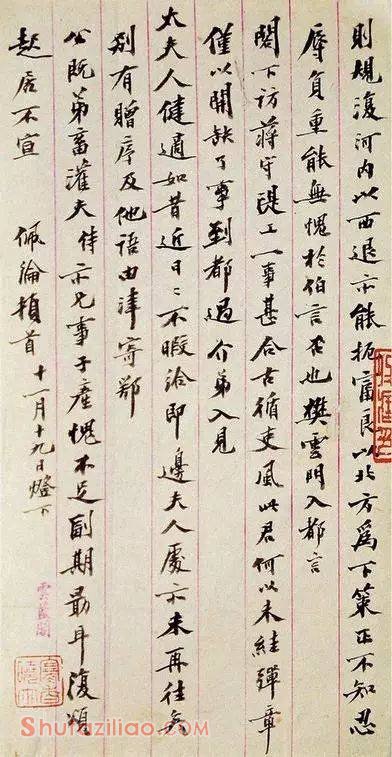 則規復河内以西退亦能扼富良以北方為下策正不知忍
辱負重能無愧於伯言否也樊雲門入都言
閣下訪蔣守隄工一事甚合古循吏風此君何以未絓彈章
僅以開缺了事到都過介弟入見
太夫人健適如昔近日〻不暇給即邊夫人處亦未再往矣
别有贈序及他語由津寄鄂
公既弟畜灌夫侍亦兄事子產愧不足副期勖耳復頌
起居不宣 佩綸頓首 十一月十九日燈下
雲藍閣
Shufaziliao.com